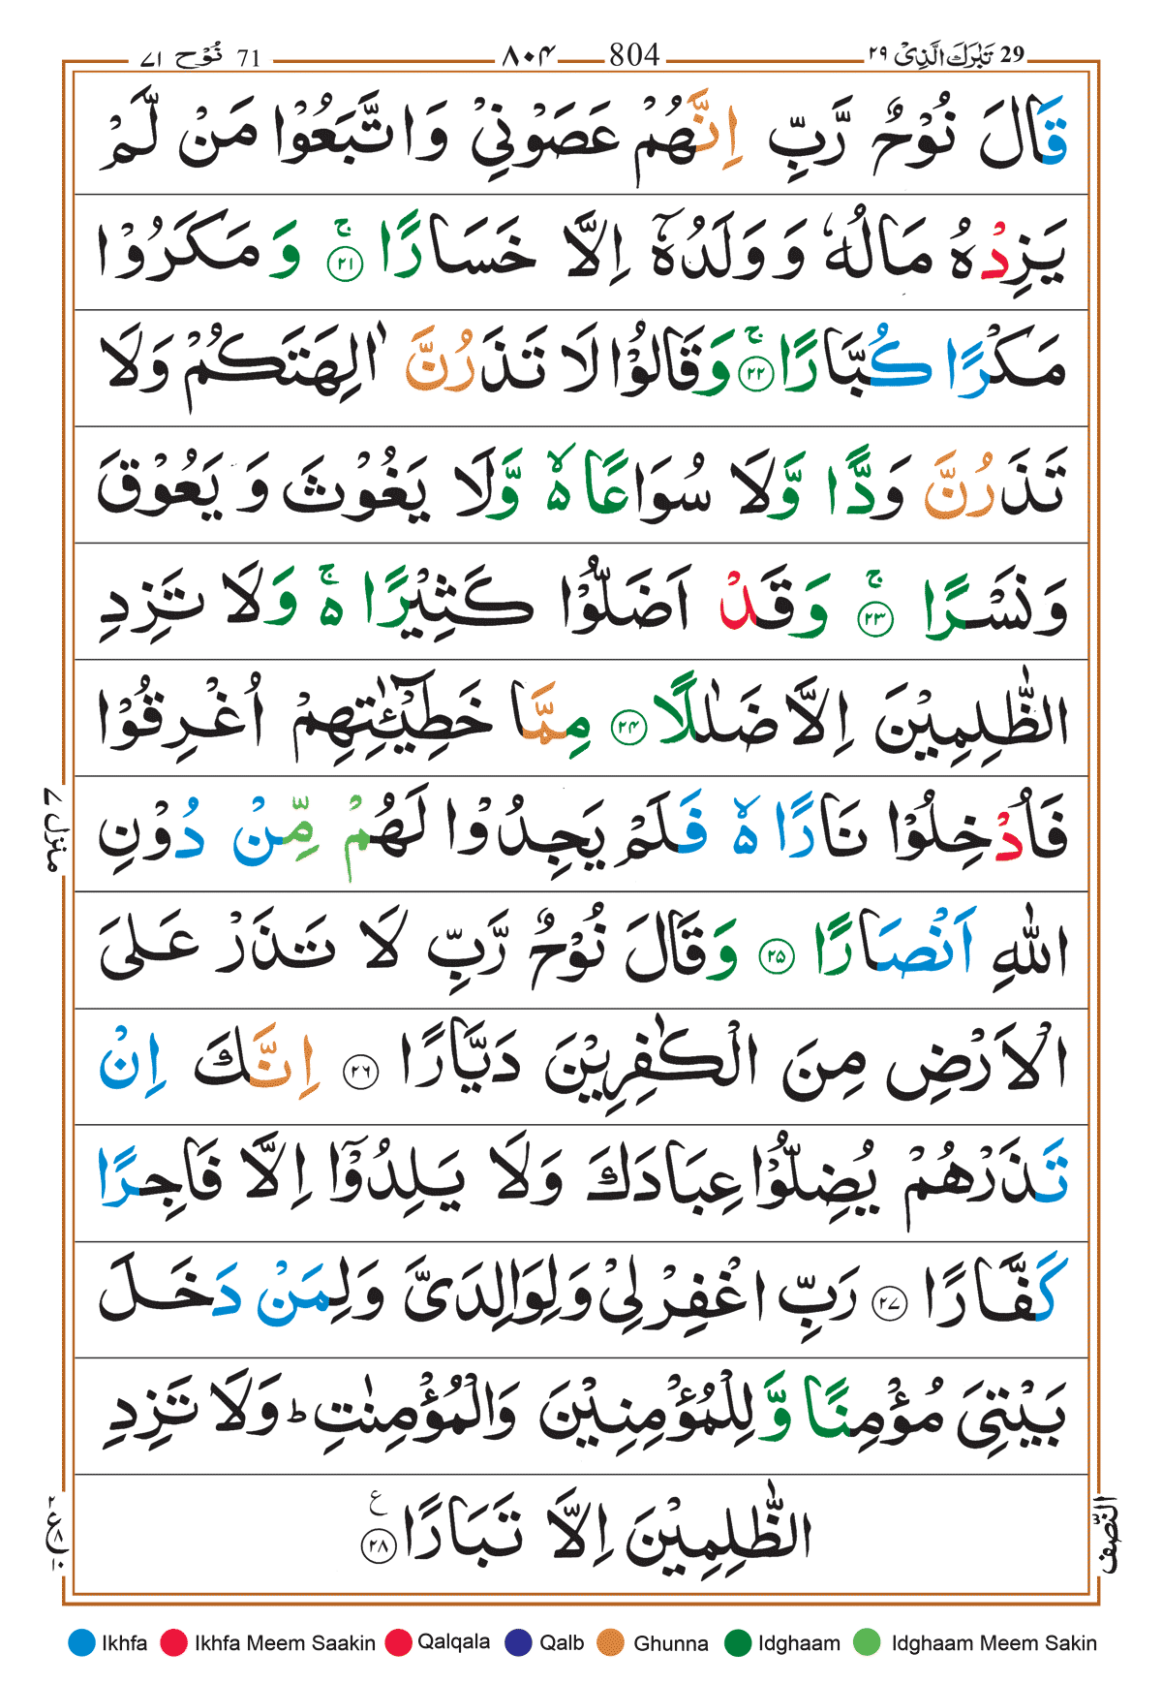 29 تَبٰرَكَ الَّذِیْ ۲۹
804 ۸۰۴
71 نُوْح ۷۱
قَالَ نُوْحٌ رَّبِّ اِنَّهُمْ عَصَوْنِیْ وَاتَّبَعُوْا مَنْ لَّمْ
یَزِدْهُ مَالُهٗ وَوَلَدُهٗۤ اِلَّا خَسَارًا ۚ ۲۱ وَمَكَرُوْا
مَكْرًا كُبَّارًا ۚ ۲۲ وَقَالُوْا لَا تَذَرُنَّ اٰلِهَتَكُمْ وَلَا
تَذَرُنَّ وَدًّا وَّلَا سُوَاعًا ۵ۙ وَّلَا یَغُوْثَ وَیَعُوْقَ
وَنَسْرًا ۚ ۲۳ وَقَدْ اَضَلُّوْا كَثِیْرًا ۵ۚ وَلَا تَزِدِ
الظّٰلِمِیْنَ اِلَّا ضَلٰلًا ۲۴ مِمَّا خَطِیْٓـٰٔتِهِمْ اُغْرِقُوْا
فَاُدْخِلُوْا نَارًا ۵ۙ فَلَمْ یَجِدُوْا لَهُمْ مِّنْ دُوْنِ
اللهِ اَنْصَارًا ۲۵ وَقَالَ نُوْحٌ رَّبِّ لَا تَذَرْ عَلَی
الْاَرْضِ مِنَ الْكٰفِرِیْنَ دَیَّارًا ۲۶ اِنَّكَ اِنْ
تَذَرْهُمْ یُضِلُّوْا عِبَادَكَ وَلَا یَلِدُوْۤا اِلَّا فَاجِرًا
كَفَّارًا ۲۷ رَبِّ اغْفِرْلِیْ وَلِوَالِدَیَّ وَلِمَنْ دَخَلَ
بَیْتِیَ مُؤْمِنًا وَّلِلْمُؤْمِنِیْنَ وَالْمُؤْمِنٰتِ ؕ وَلَا تَزِدِ
الظّٰلِمِیْنَ اِلَّا تَبَارًا ۲۸ ع
منزل ۷
النّصف
Ikhfa Ikhfa Meem Saakin Qalqala Qalb Ghunna Idghaam Idghaam Meem Sakin